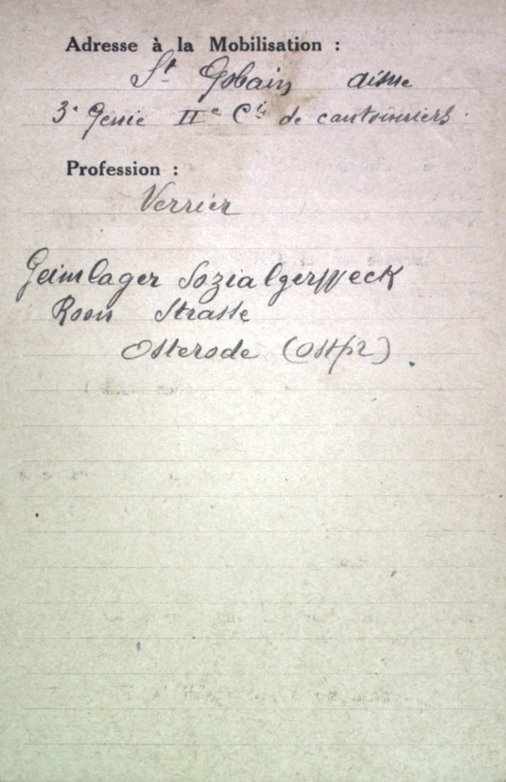 Adresse à la Mobilisation :
St Gobain aisne
3e Génie IIe Cie de cantonniers
Profession :
Verrier
Geimlager Sozialgerffeck
Roon Strasse
Osterode (Ostpr)